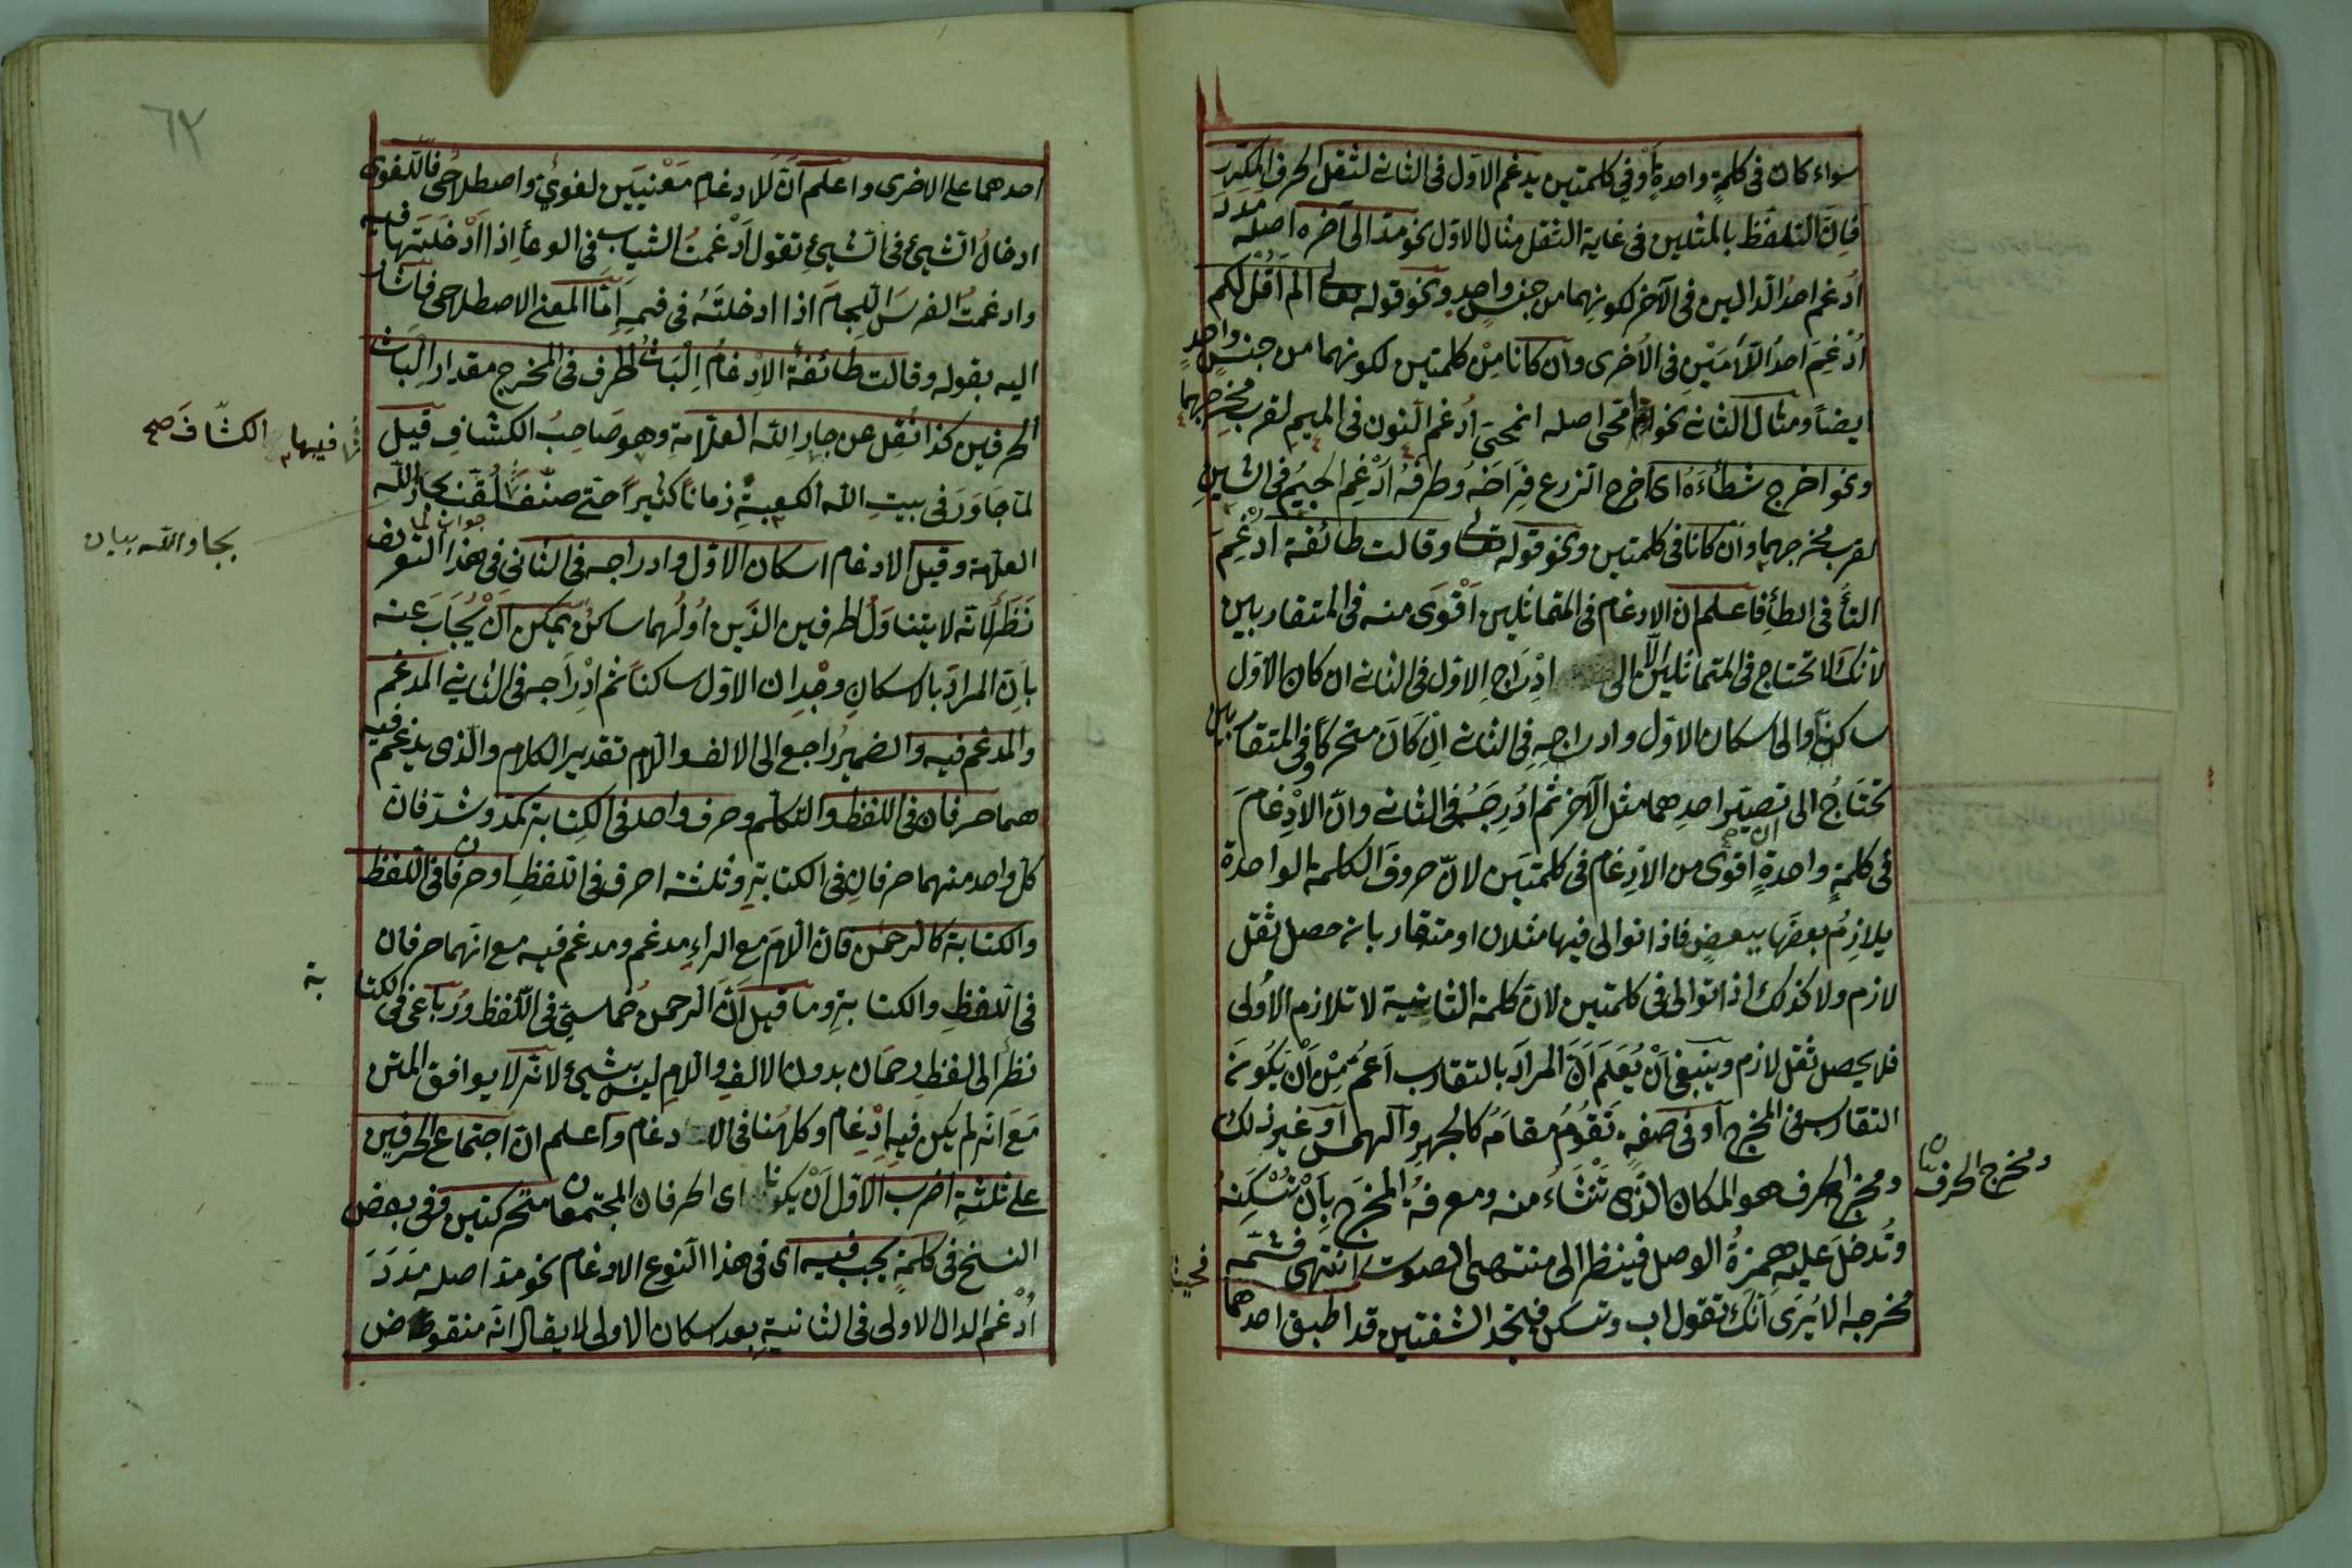 سواء كان في كلمةٍ واحدةٍ أوفي كلمتين يدغم الاوّل في الثاني لثقل الحرف المكرر
فإنّ التلفّظ بالمثلين في غاية الثقل مثال الاوّل نحو مدّ الى آخره اصله مَدَدَ
اُدغم احدُ الدالين في الآخر لكونهما من جنسٍ واحدٍ ونحو قوله تعالى الم اَقُلْ لكم
اُدْغِمَ احدُ اللّامَيْنِ في الاُخرى وان كانا مِنْ كلمتين لكونهما من جنسٍ واحدٍ
ايضاً ومثال الثاني نحو امّحى اصله انمحى اُدغم النون في الميم لقرب مخرجهما
ونحو اخرج شطاءَهُ اى اخرج الزرع فِرَاخَهُ وطرفهُ اُدْغِم الجيمُ في الشينِ
لقرب مخرجهما وان كانا في كلمتين ونحو قوله تعالى وقالت طائفة اُدْغِمَ
التأ في الطأِ فاعلم ان الادغام في المتماثلين اَقْوَى منه في المتقاربين
لأنّكَ لا تحتاج في المتماثلين الّا الى ادْرَاجِ الاوّل في الثاني ان كان الاوّل
ساكناً والى اسكان الاوّل وادراجهِ في الثاني اِنْ كَانَ متحركاً وفي المتقاربين
تحتَاجُ الى تصيير احدِهما مثل الآخر ثم ادُرِجَهُ في الثاني وانّ الاِدْغامَ
في كلمةٍ واحدةٍ اقوى من الادِغام في كلمتيَن لانّ حروفَ الكلمة الواحدة
يلازِمُ بعضُها ببعضٍ فاذا توالى فيها مثلان او متقاربان حصل ثقل
لازم ولا كذلك اذا توالى في كلمتين لانّ كلمة الثانية لا تلازم الاُولى
فلا يحصل ثقل لازم وينبغي اَنْ يُعَلَمَ اَنَّ المرادَ بالتقارب اَعمُّ مِنْ اَنْ يَكُونَ
التقارب في المخرج آو في صفةٍ تَقُومُ مقامَهُ كالجهرِ والهمس آو غير ذلك
ومخرج الحرف هو المكان الذى تَنْشَاءُ منه ومعرفةُ المخرج بِاَنْ تُسْكِنَهُ
ومخرج الحرف
وتُدخلَ عليهِ همزةُ الوصل فينظر الى منتهى الصوت انتهى فثمّه
مخرجه الا يُرَى اَنّكَ تقول اب وتسكن فتجد الشفتين قد اطبق احدهما
٦٢
احدهما على الاخرى واعلم اَنَّ للادغام مَعْنيَيَن لغوىٌّ واصطلاحىٌّ فاللّغوى
ادخالُ الشيئ في الشيئ تقول اَدْغمتُ الثياب في الوعأِ اِذا اَدْخَلَتها فيه
وادغمتُ الفرسَ اللّجامَ اذا ادخلتَهُ في فيهِ اَمّا المعنى الاصطلاحى فاشار
اليه بقوله وقالت طائفةُ الاِدْغامُ اِلْباثُ الحرف في المخرج مقدار اِلباث
الحرفين كذا نُقِل عن جارِ اللّه العلّامة وهو صَاحِبُ الكشافِ قيل
فيها الكشّافَ صح
لمّا جَاوَرَ في بيتِ اللّه الكعبةِ زماناً كثيراً حتى صنّفَ لُقّبَ بجار اللّه
بجاو اللّه بيان
العلّامة وقيل الادغام اسكان الاوّل وادراجه في الثانى في هذا التعريف
جواب لمّا
نَظَرٌ لانّه لا يتناوَلُ الحرفين الذَين اُولُهما ساكنٌ يمكن اَنْ يُجَابَ عنه
بِاَنّ المرادَ بالاسكانِ وِجْدان الاوّل ساكناً ثم ادْرَاجه في الثاني المدغم
والمدغم فيه والضميرُ راجع الى الالف والّام تقدير الكلام والّذى يدغم فيه
هما حرفان في اللفظ والتكلّم وحرف واحد في الكتابة كمدّ وشدّ فانّ
كلّ واحد منهما حرفانِ في الكتابةِ وثلثة احرف في اللفظِ او حرفان في اللفظ
والكتابة كالرحمن فانّ الّامَ مع الراءِ مدغم ومدغم فيه مع انّهما حرفان
في اللفظِ والكتابةِ وما قيل اَنّ الرحمنُ خماسىّ في اللّفظ ورُباعى في الكتابة
نظراً الى لفظِ رحمان بدون الالفِ والّامِ ليس بشيئ لانّه لا يوافق المتن
مَعَ انّه لم يكن فيهِ اِدْغام وكلامُنا في الادغام واَعلم انّ اجتماع الحرفين
على ثلثةِ اضرب الاوّل اَنْ يكونا اى الحرفان المجتمعان متحركتين وفى بعض
النسخ في كلمةٍ يجب فيه اى في هذا النّوع الادغام نحو مدّ اصله مَدَدَ
اُدْغم الدال الاولى في الثانيةِ بعد اسكان الاولى لا يقال انّه منقوض